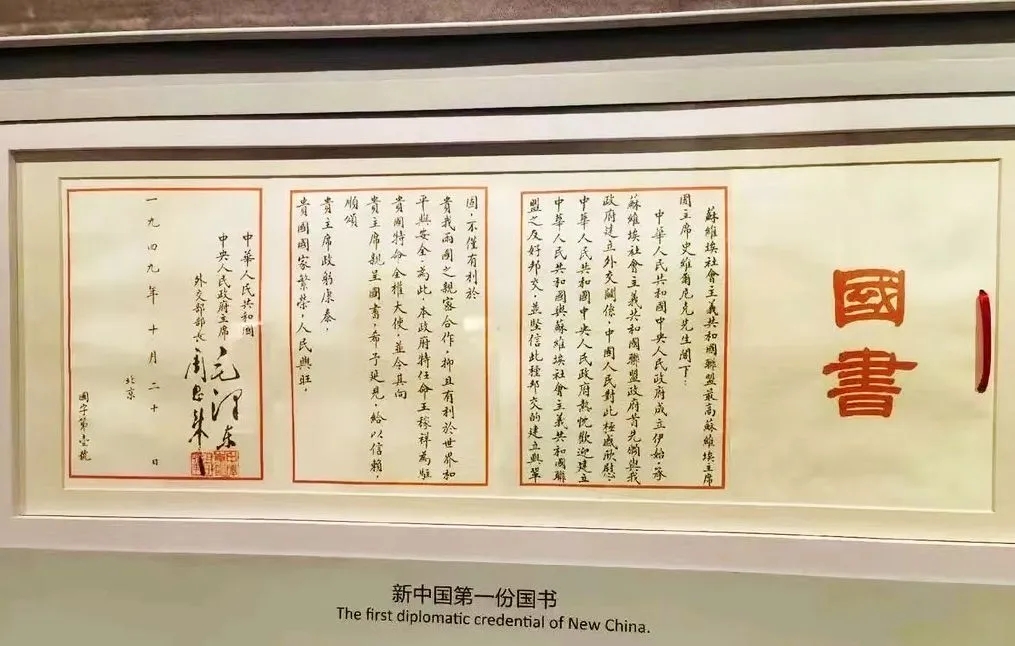 國書
蘇維埃社會主義共和國聯盟最高蘇維埃主席
團主席史維爾尼克先生閣下:
中華人民共和國中央人民政府成立伊始,承
蘇維埃社會主義共和國聯盟政府首先願與我
政府建立外交關係,中國人民對此極感欣慰。
中華人民共和國中央人民政府熱忱歡迎建立
中華人民共和國與蘇維埃社會主義共和國聯
盟之友好邦交,並堅信此種邦交的建立與鞏
固,不僅有利於
貴我兩國之親密合作,抑且有利於世界和
平與安全。為此,本政府特任命王稼祥為駐
貴國特命全權大使,並令其向
貴主席親呈國書,希予延見,給以信賴。
順頌
貴主席政躬康泰,
貴國國家繁榮,人民興旺。
中華人民共和國
中央人民政府主席 毛澤东
外交部部長 周恩来
一九四九年十月二十日
北京
國字第壹號
新中国第一份国书
The first diplomatic credential of New China.